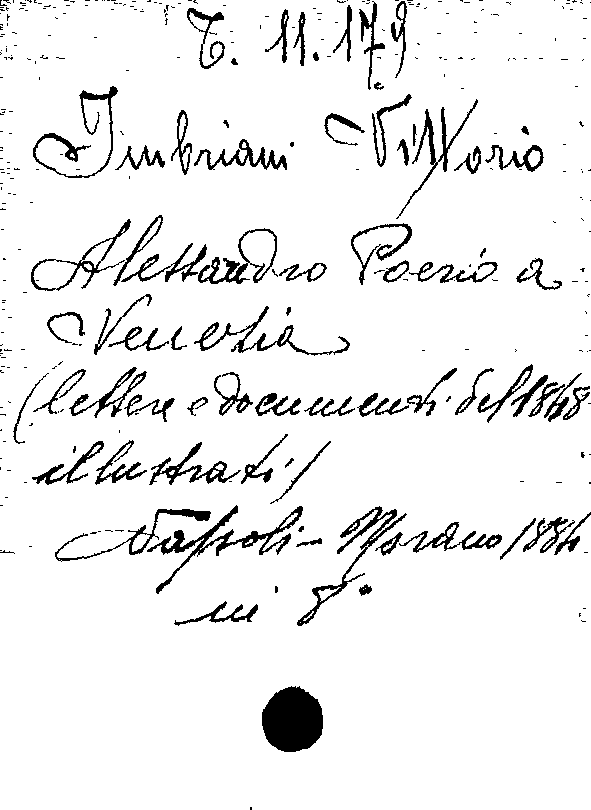 T. 11. 179
Imbriani Vittorio
Alessandro Poerio a
Venezia
(lettere e documenti del 1848
illustrati)
Napoli - Morano 1884
in 8°